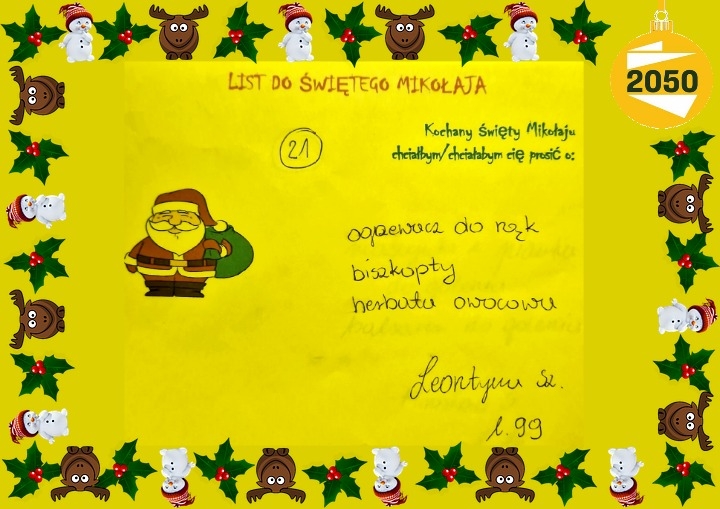 2050
LIST DO ŚWIĘTEGO MIKOŁAJA
21
Kochany Święty Mikołaju
chciałbym/chciałabym cię prosić o:
ogrzewacz do rąk
biszkopty
herbata owocowa
Leontyna Sz.
l. 99